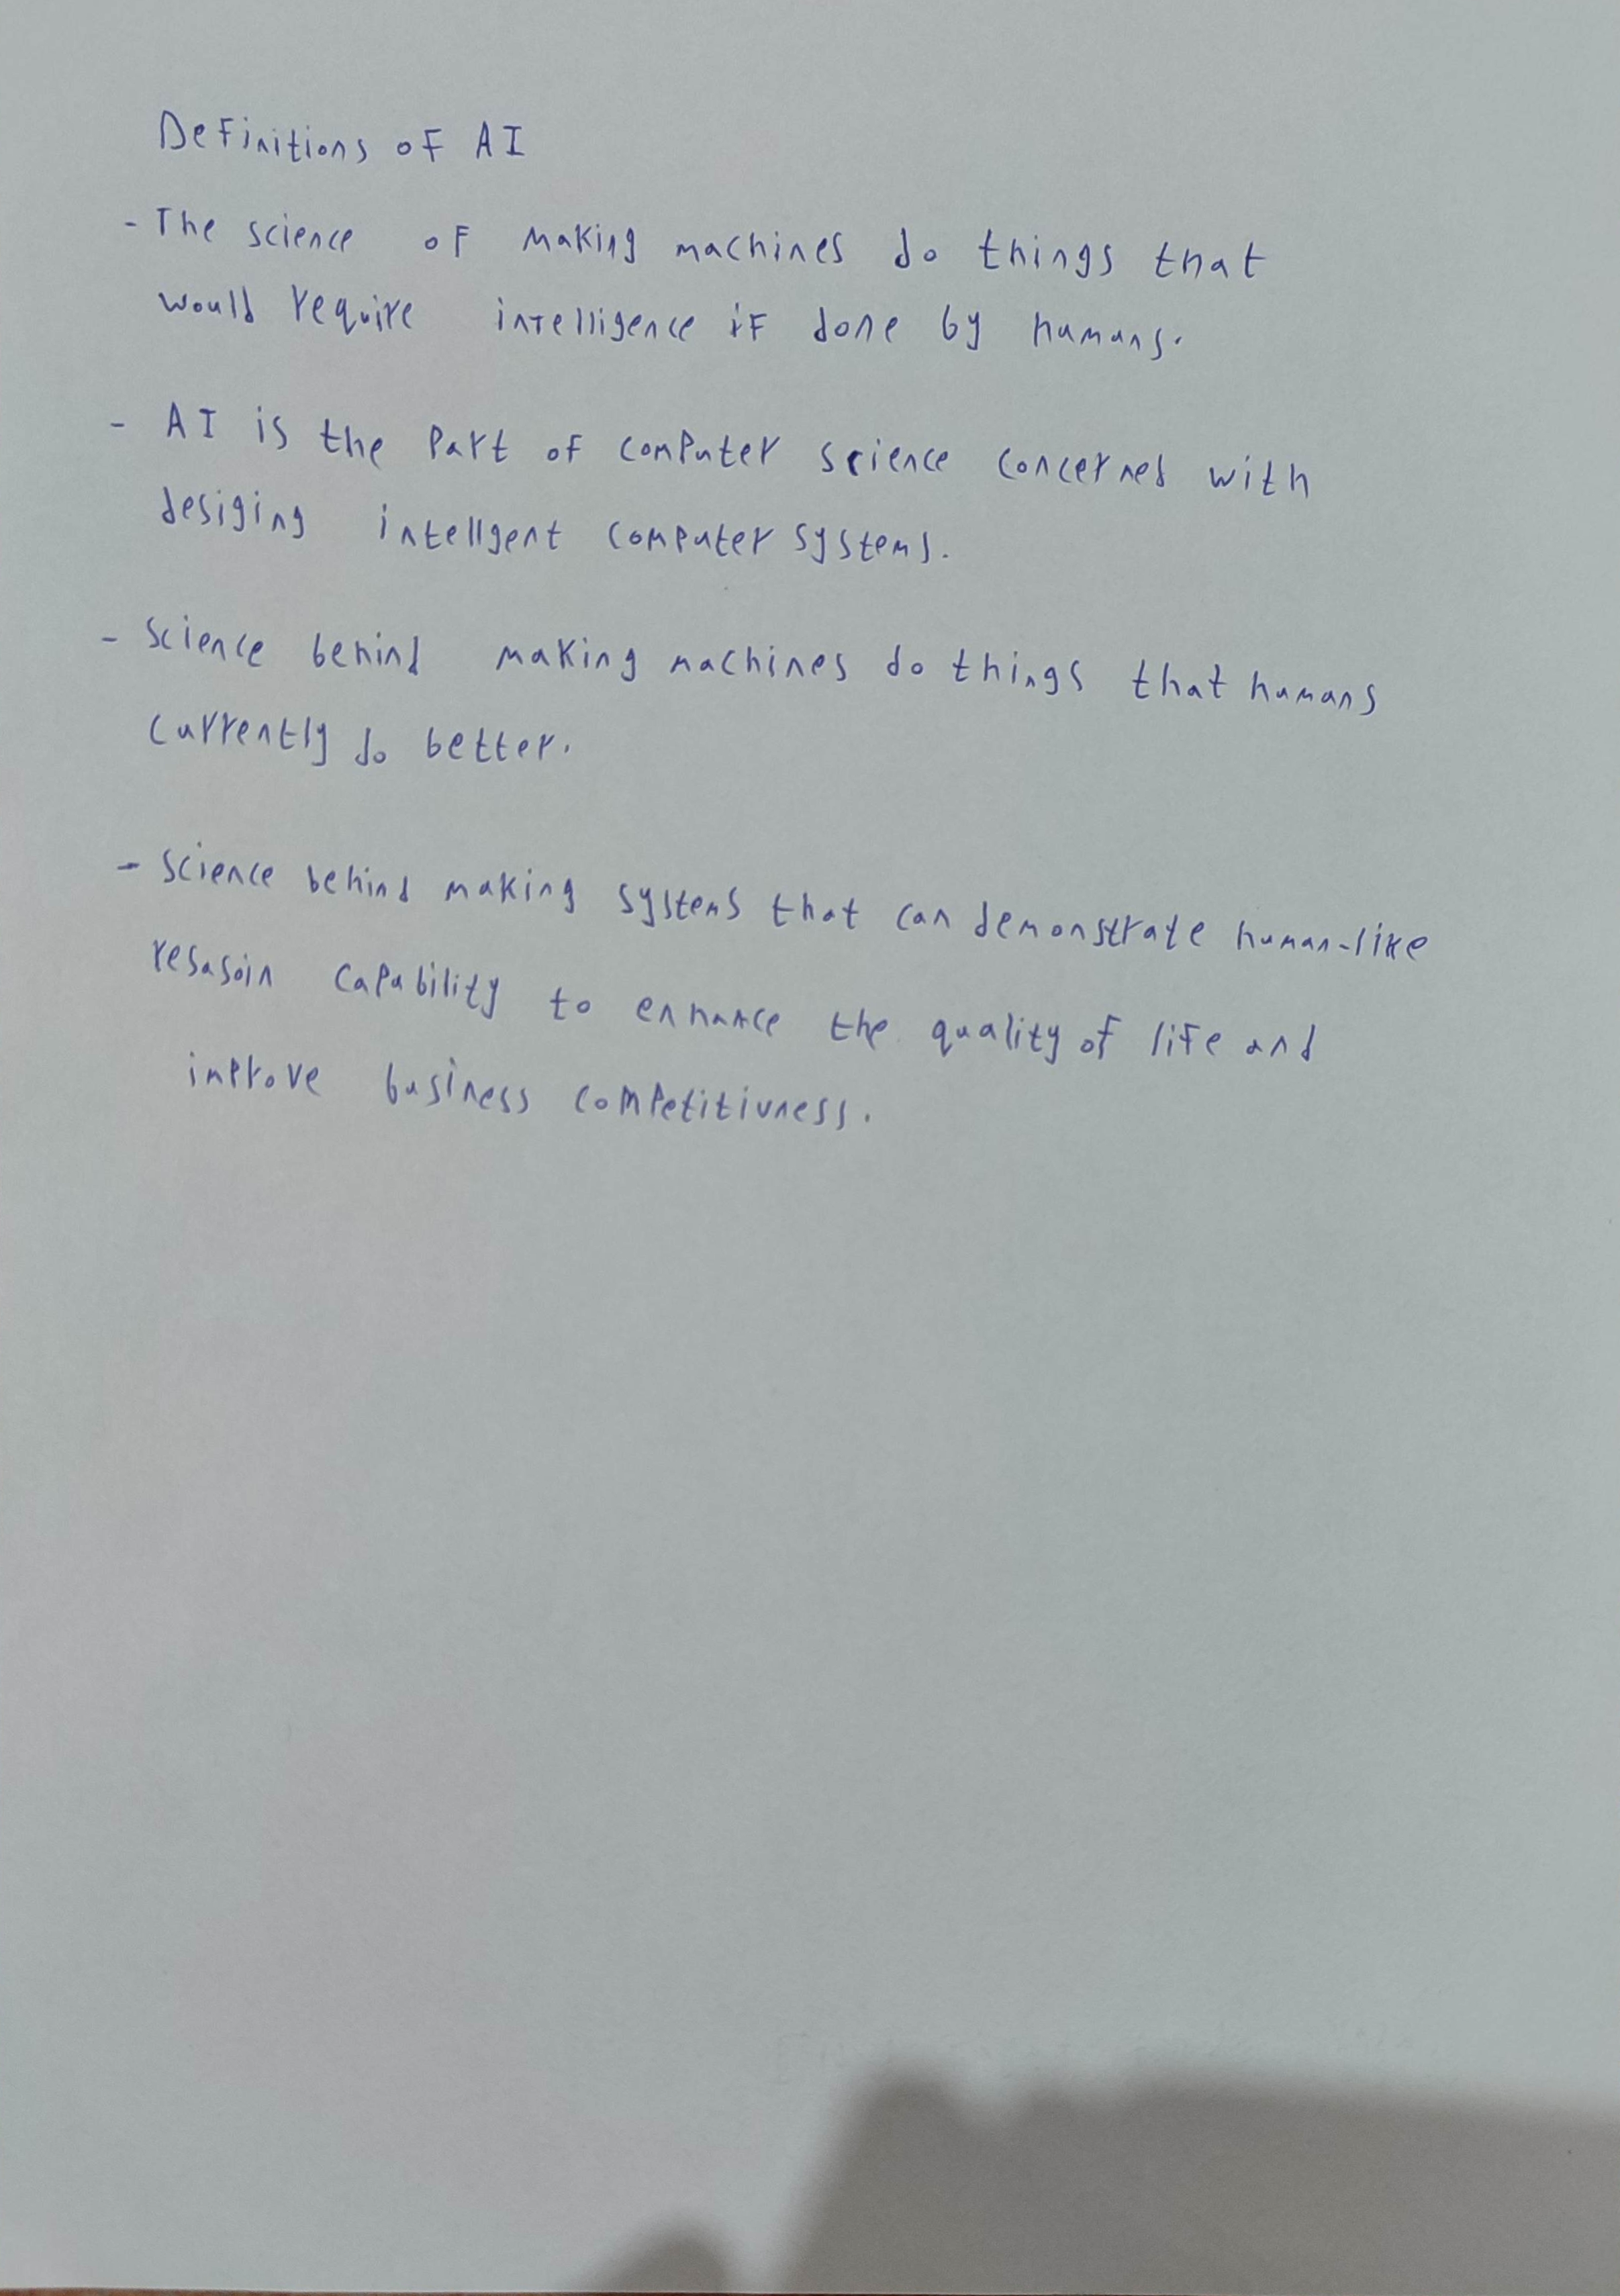 Definitions of AI
- The science of making machines do things that
would require intelligence if done by humans.
- AI is the part of computer science concerned with
desiging intellgent computer systems.
- science behind making machines do things that humans
currently do better.
- science behind making systems that can demonstrate human-like
resasoin capability to enhance the quality of life and
improve business competitivness.